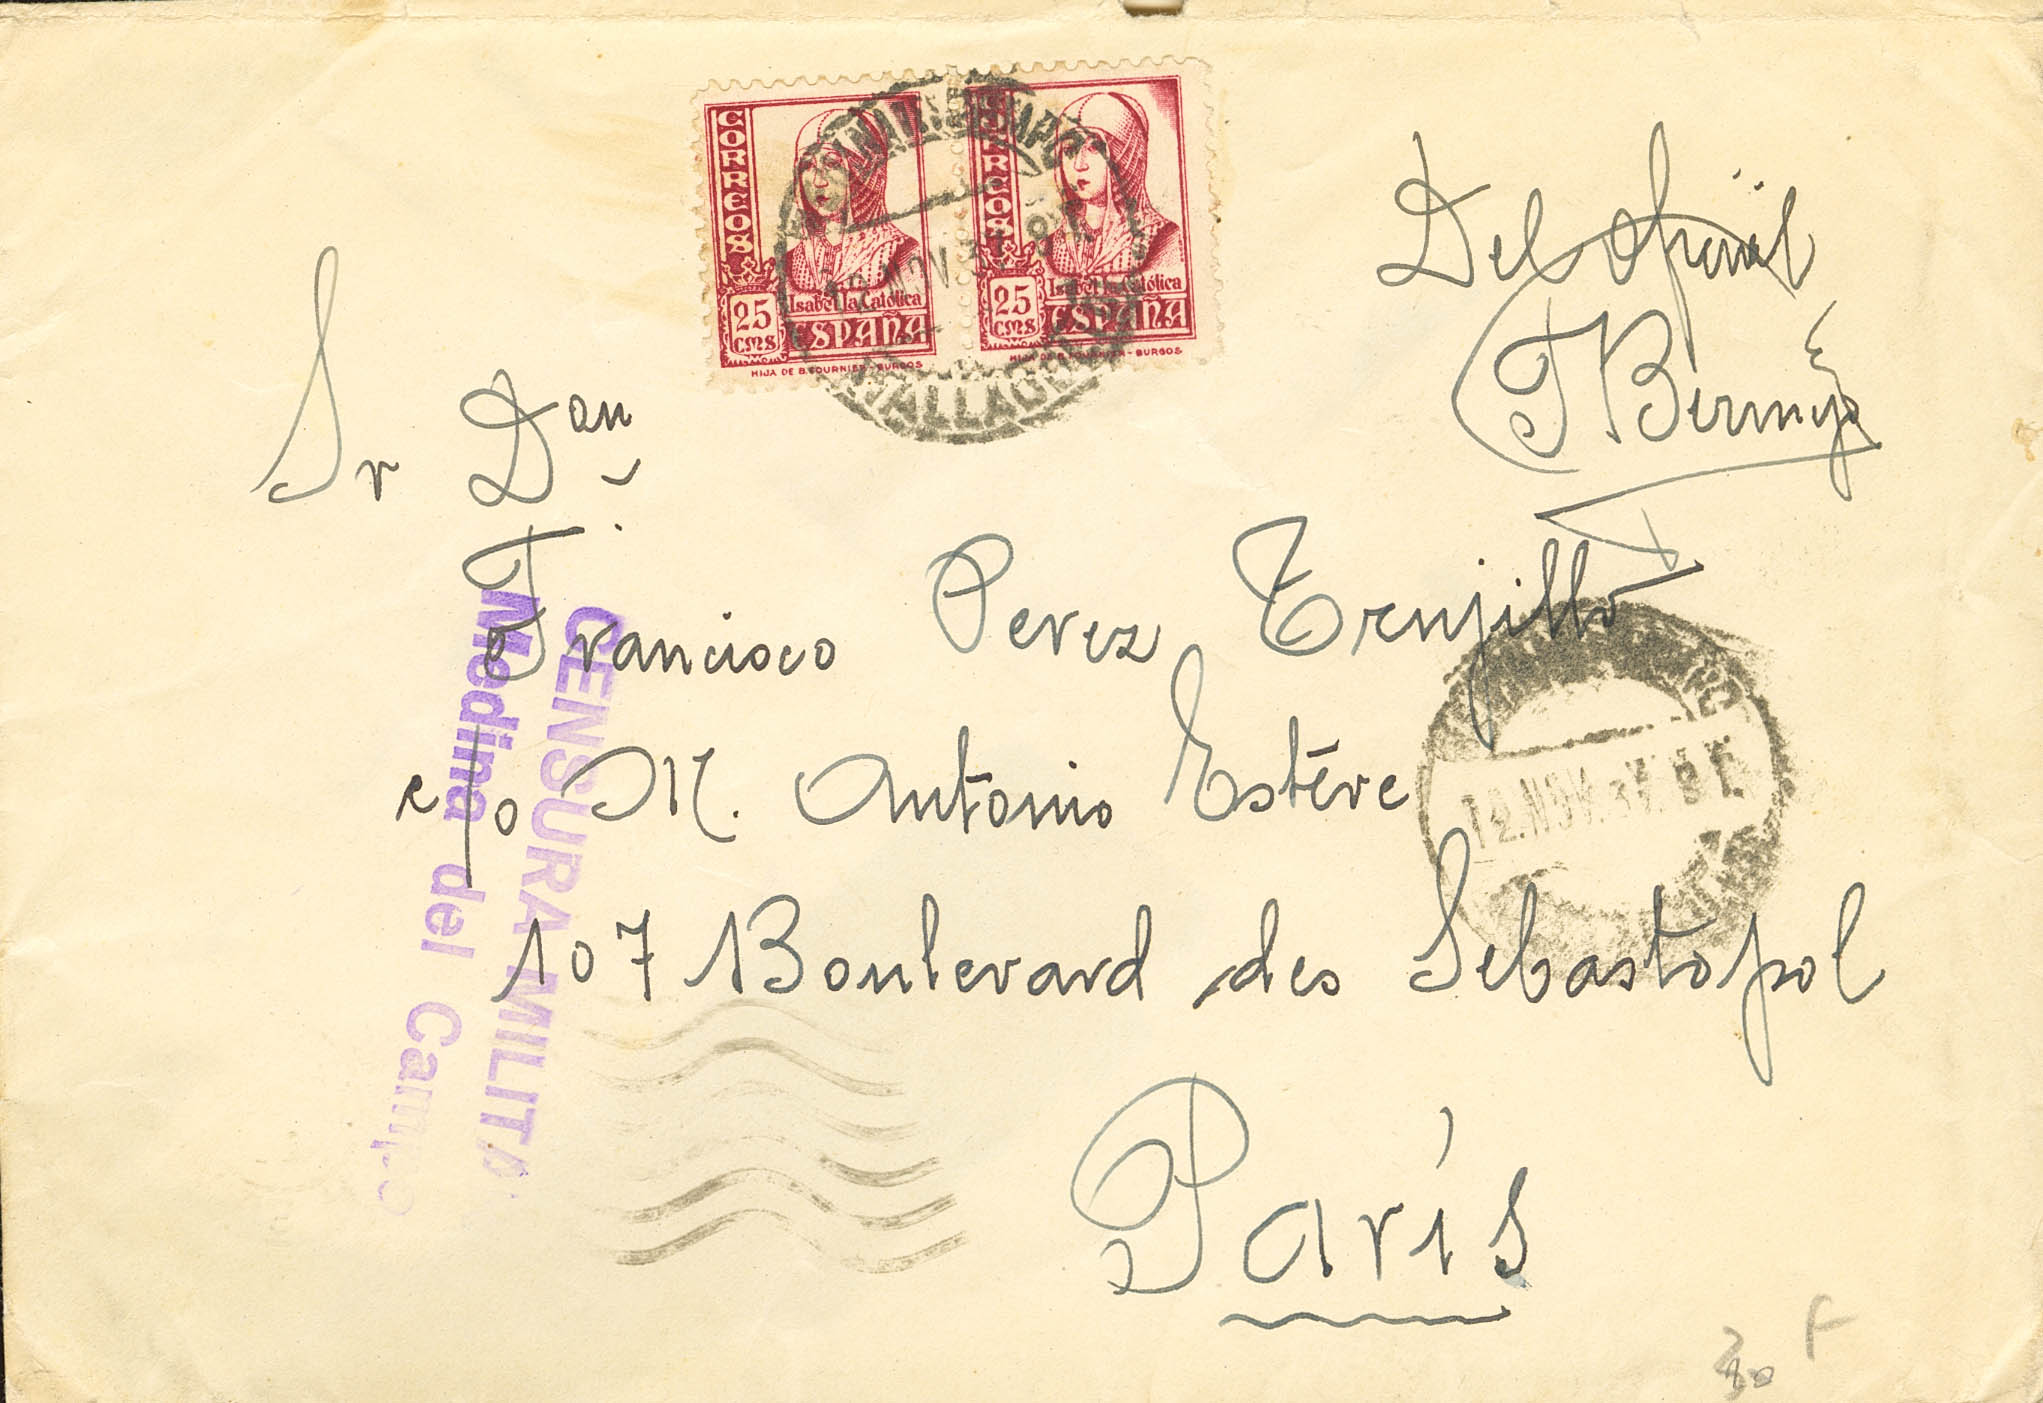 CORREOS
25 CMS
Isabel la Católica
ESPAÑA
HIJA DE B. FOURNIER - BURGOS
CORREOS
25 CMS
Isabel la Católica
ESPAÑA
HIJA DE B. FOURNIER - BURGOS
12 NOV 37
VALLADOLID
Del Oficial
F Bermejo
Sr Don
Francisco Perez Trujillo
c/o M. Antonio Estève
107 Boulevard des Sebastopol
París
CENSURA MILITA
Medina del Campo
12. NOV. 37.